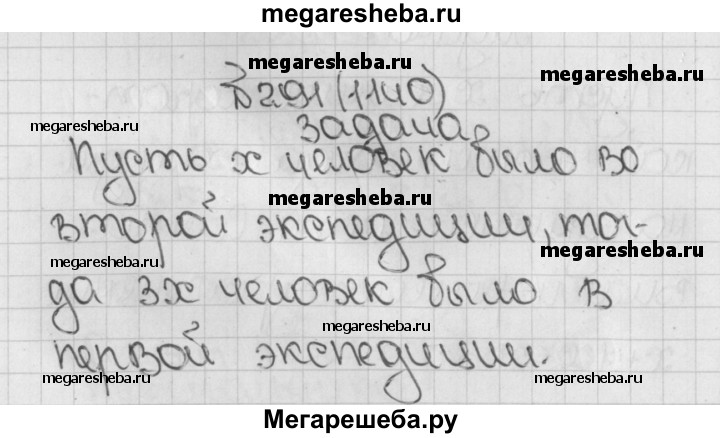 megaresheba.ru
megaresheba.ru
megaresheba.ru
№ 291 (1140)
megaresheba.ru
задача
megaresheba.ru
Пусть x человек было во
megaresheba.ru
второй экспедиции, тог-
megaresheba.ru
megaresheba.ru
да 3x человек было в
megaresheba.ru
первой экспедиции.
megaresheba.ru
megaresheba.ru
Мегарешеба.ру